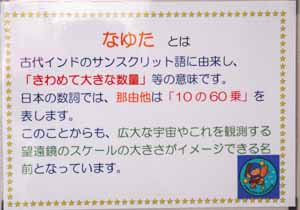 なゆた とは
古代インドのサンスクリット語に由来し、
「きわめて大きな数量」等の意味です。
日本の数詞では、那由他は「10の60乗」を
表します。
このことからも、広大な宇宙やこれを観測する
望遠鏡のスケールの大きさがイメージできる名
前となっています。